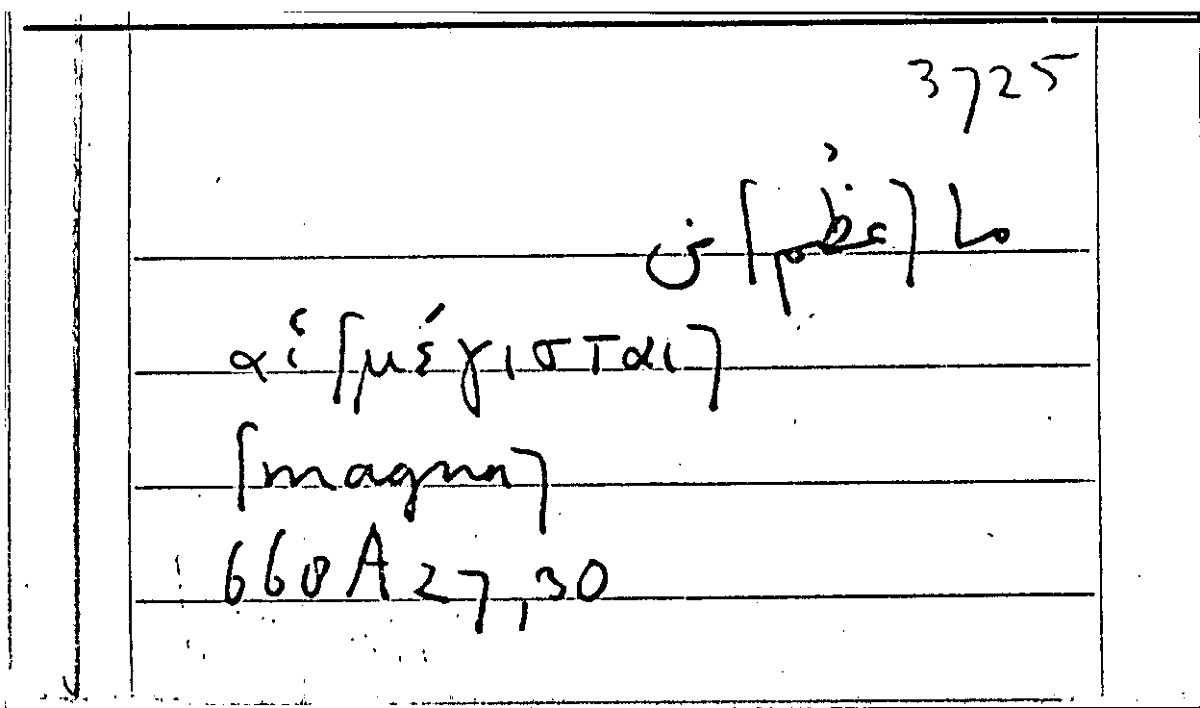 3725
ما [عظُم] من
αἱ [μέγισται]
[magna]
660A27,30